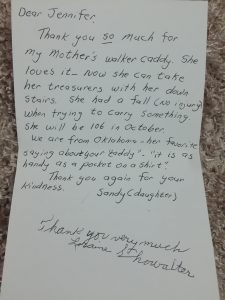 Dear Jennifer,
Thank you so much for
my mother's walker caddy. She
loves it - Now she can take
her treasurers with her down
stairs. She had a fall (no injury)
when trying to carry something
She will be 106 in October.
We are from Oklahoma - her favorite
saying about your "caddy" - "it is as
handy as a pocket on a shirt".
Thank you again for your
kindness.
Sandy (daughter)
Thank you very much
Showalter